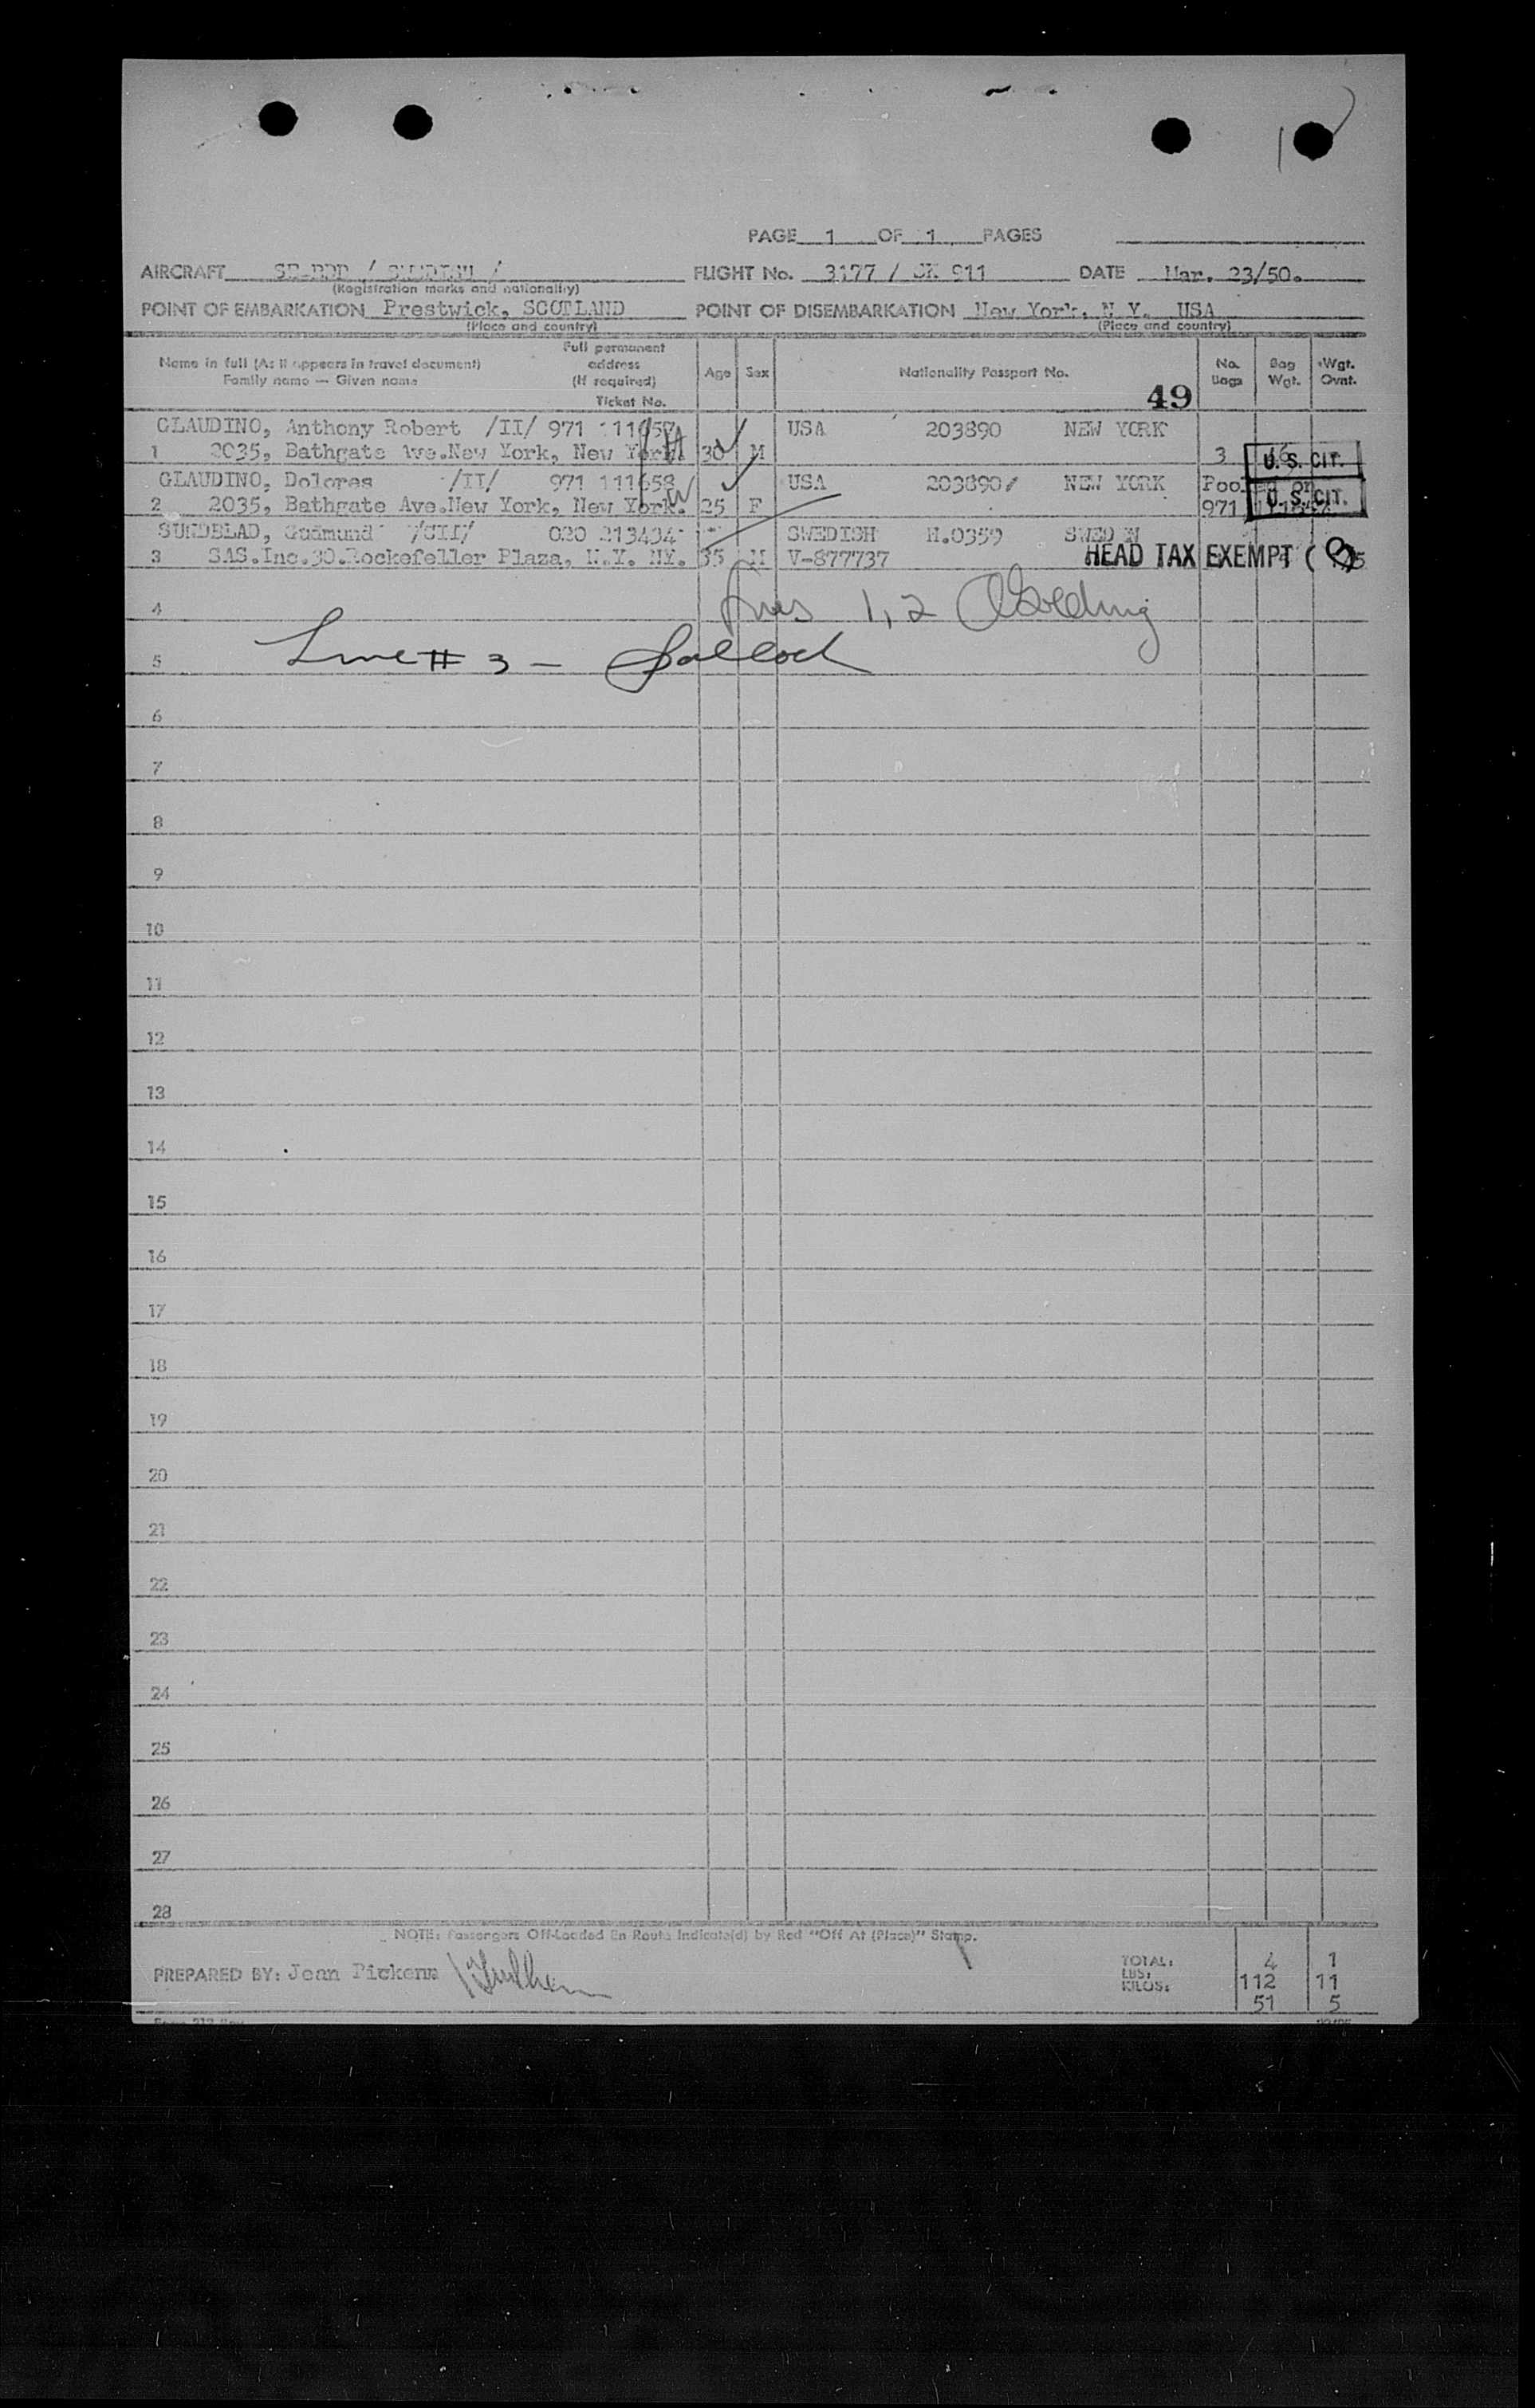 PAGE 1 OF 1 PAGES
AIRCRAFT / / FLIGHT No. 3177 / SK 911 DATE Mar. 23/50.
(Registration marks and nationality)
POINT OF EMBARKATION Prestwick, SCOTLAND POINT OF DISEMBARKATION New York, N.Y. USA
(Place and country) (Place and country)
Name in full (As it appears in travel document)
Family name — Given name
Full permanent
address
(If required)
Ticket No.
Age Sex Nationality Passport No. No. Bags Bag Wgt. Wgt. Ovnt.
49
GLAUDINO, Anthony Robert /II/ 971 111657 USA 203890 NEW YORK
1 2035, Bathgate Ave.New York, New York. 30 M 3 U.S. CIT.
GLAUDINO, Dolores /II/ 971 111658 USA 203890 NEW YORK Pooled on
2 2035, Bathgate Ave.New York, New York. 25 F 971 U.S. CIT.
SUNDBLAD, Gudmund /CII/ 020 213434 SWEDISH H.0359 SWEDEN
3 SAS.Inc.30.Rockefeller Plaza, N.Y. NY. 35 M V-877737 HEAD TAX EXEMPT (
4 Lines 1, 2 Golding
5 Line # 3 -
6
7
8
9
10
11
12
13
14
15
16
17
18
19
20
21
22
23
24
25
26
27
28
NOTE: Passengers Off-Loaded En Route Indicate(d) by Red "Off At (Place)" Stamp.
PREPARED BY: Jean Pickens
TOTAL: 4 1
LBS: 112 11
KILOS: 51 5